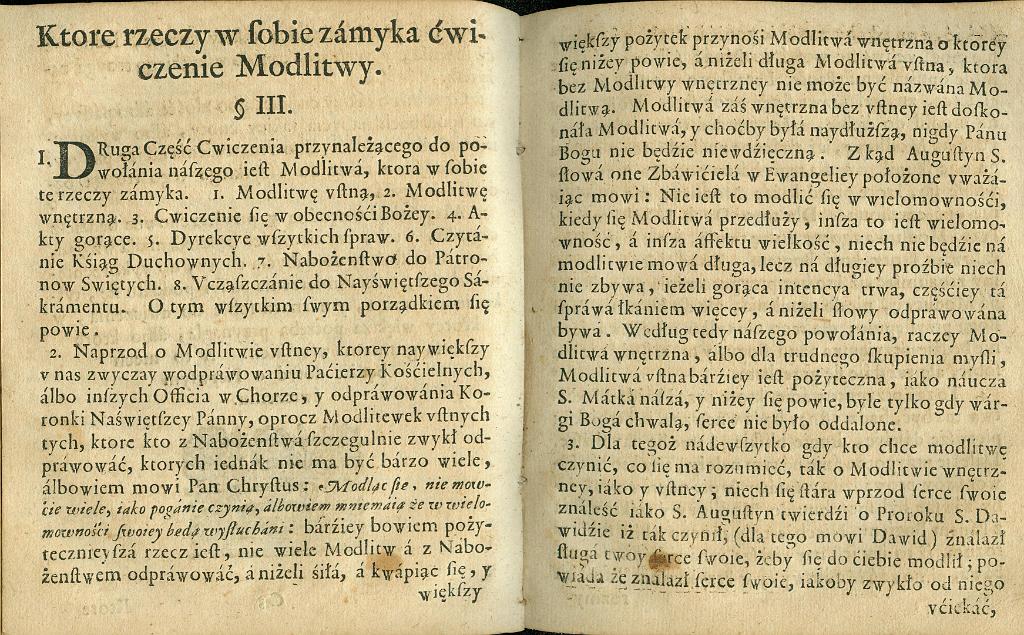 Ktore rzeczy w ſobie zámyka ćwi-
czenie Modlitwy.
§ III.
1. DRuga Część Cwiczenia przynależącego do po-
wołánia náſzego ieſt Modlitwá, ktora w ſobie
te rzeczy zámyka. 1. Modlitwę vſtną, 2. Modlitwę
wnętrzną. 3. Cwiczenie ſię w obecnośći Bożey. 4. A-
kty gorące. 5. Dyrekcye wſzytkich ſpraw. 6. Czytá-
nie Kśiąg Duchownych. 7. Nabożenſtwo do Pátro-
now Swiętych. 8. Vcząſzczánie do Nayświętſzego Sá-
krámentu. O tym wſzytkim ſwym porządkiem ſię
powie.
2. Naprzod o Modlitwie vſtney, ktorey naywiękſzy
v nas zwyczay wodpráwowaniu Paćierzy Kośćielnych,
álbo inſzych Officia w Chorze, y odpráwowánia Ko-
ronki Naświętſzey Pánny, oprocz Modlitewek vſtnych
tych, ktore kto z Nabożenſtwá ſzczegulnie zwykł od-
práwowáć, ktorych iednák nie ma być bárzo wiele,
álbowiem mowi Pan Chryſtus: Modląc ſię, nie mow-
ćie wiele, iako poganie czynią, álbowiem mniemáią że w wielo-
mownośći ſwoiey będą wyſłucháni: bárźiey bowiem poży-
tecznieyſzá rzecz ieſt, nie wiele Modlitw á z Nabo-
żenſtwem odpráwowáć, á niżeli śiłá, á kwápiąc ſię, y
więkſzy
więkſzy pożytek przynośi Modlitwá wnętrzna o ktorey
ſię niżey powie, á niżeli długa Modlitwá vſtna, ktora
bez Modlitwy wnętrzney nie może być názwána Mo-
dlitwą. Modlitwá záś wnętrzna bez vſtney ieſt doſko-
náła Modlitwá, y choćby byłá naydłużſzą, nigdy Pánu
Bogu nie będzie niewdźięczną. Z kąd Auguſtyn S.
ſłowá one Zbáwićielá w Ewangeliey położone vważá-
iąc mowi: Nie ieſt to modlić ſię w wielomownośći,
kiedy ſię Modlitwá przedłuży, inſza to ieſt wielomo-
wność, á inſza áffektu wielkość, niech nie będzie ná
modlitwie mowá długa, lecz ná długiey proźbie niech
nie zbywa, ieżeli gorąca intencya trwa, częśćiey tá
ſpráwá łkániem więcey, á niżeli ſłowy odpráwowána
bywá. Według tedy náſzego powołánia, raczey Mo-
dlitwá wnętrzna, álbo dla trudnego ſkupienia myſli,
Modlitwá vſtna bárźiey ieſt pożyteczna, iáko náucza
S. Mátká náſzá, y niżey ſię powie, byle tylko gdy wár-
gi Bogá chwalą, ſerce nie było oddalone.
3. Dla tegoż nádewſzytko gdy kto chce modlitwę
czynić, co ſię ma rozumieć, ták o Modlitwie wnętrz-
ney, iáko y vſtney; niech ſię ſtára wprzod ſerce ſwoie
ználeść iáko S. Auguſtyn twierdźi o Proroku S. Da-
widźie iż ták czynił, (dla tego mowi Dawid) ználazł
ſługá twoy ſerce ſwoie, żeby ſię do ćiebie modlił; po-
wiada że znalazł ſerce ſwoie, iakoby zwykło od niego
vćiekáć,